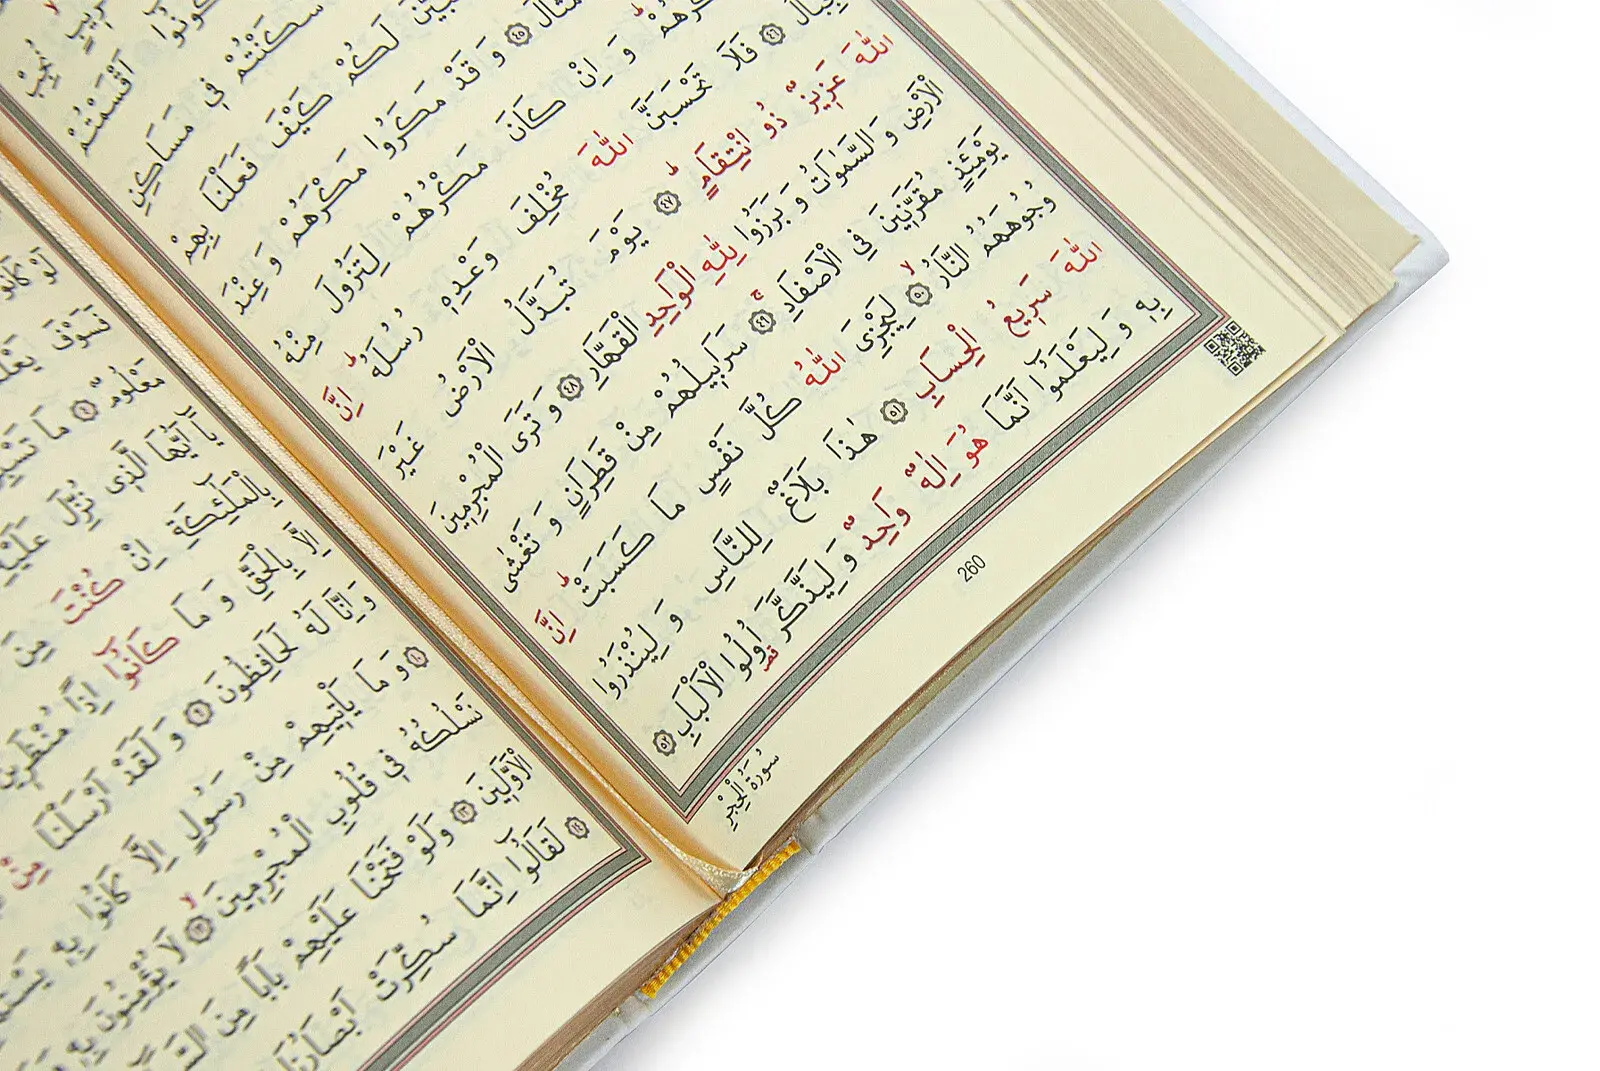 نُجِبْ
اَقْسَمْتُمْ
سَكَنْتُمْ ف۪ي مَسَاكِنِ
لَكُمْ كَيْفَ فَعَلْنَا بِهِمْ
﴿٤٥﴾ وَقَدْ مَكَرُوا مَكْرَهُمْ وَعِنْدَ
وَاِنْ كَانَ مَكْرُهُمْ لِتَزُولَ مِنْهُ
﴿٤٦﴾ فَلَا تَحْسَبَنَّ اللّٰهَ مُخْلِفَ وَعْدِه۪ رُسُلَهُۜ اِنَّ
اللّٰهَ عَز۪يزٌ ذُو انْتِقَامٍۜ ﴿٤٧﴾ يَوْمَ تُبَدَّلُ الْاَرْضُ غَيْرَ
الْاَرْضِ وَالسَّمٰوَاتُ وَبَرَزُوا لِلّٰهِ الْوَاحِدِ الْقَهَّارِ ﴿٤٨﴾ وَتَرَى الْمُجْرِم۪ينَ
يَوْمَئِذٍ مُقَرَّن۪ينَ فِي الْاَصْفَادِۚ ﴿٤٩﴾ سَرَاب۪يلُهُمْ مِنْ قَطِرَانٍ وَتَغْشٰى
وُجُوهَهُمُ النَّارُۙ ﴿٥٠﴾ لِيَجْزِيَ اللّٰهُ كُلَّ نَفْسٍ مَا كَسَبَتْۜ اِنَّ
اللّٰهَ سَر۪يعُ الْحِسَابِ ﴿٥١﴾ هٰذَا بَلَاغٌ لِلنَّاسِ وَلِيُنْذَرُوا
بِه۪ وَلِيَعْلَمُٓوا اَنَّمَا هُوَ اِلٰهٌ وَاحِدٌ وَلِيَذَّكَّرَ اُو۬لُوا الْاَلْبَابِ ﴿٥٢﴾
260
سُورَةُ الْحِجْرِ
لَوْ كَانُوا
فَسَوْفَ
مَعْلُومٌ ﴿٤﴾ مَا
يَٓا اَيُّهَا الَّذ۪ي نُزِّلَ عَلَيْهِ
بِالْمَلٰٓئِكَةِ اِنْ كُنْتَ مِنَ
اِلَّا بِالْحَقِّ وَمَا كَانُٓوا اِذًا مُنْظَر۪ينَ
وَاِنَّا لَهُ لَحَافِظُونَ ﴿٩﴾ وَلَقَدْ اَرْسَلْنَا مِنْ
﴿١٠﴾ وَمَا يَأْت۪يهِمْ مِنْ رَسُولٍ اِلَّا كَانُوا بِه۪
نَسْلُكُهُ ف۪ي قُلُوبِ الْمُجْرِم۪ينَۙ ﴿١٢﴾ لَا يُؤْمِنُونَ بِه۪
الْاَوَّل۪ينَ ﴿١٣﴾ وَلَوْ فَتَحْنَا عَلَيْهِمْ بَابًا مِنَ
﴿١٤﴾ لَقَالُٓوا اِنَّمَا سُكِّرَتْ اَبْصَارُنَا